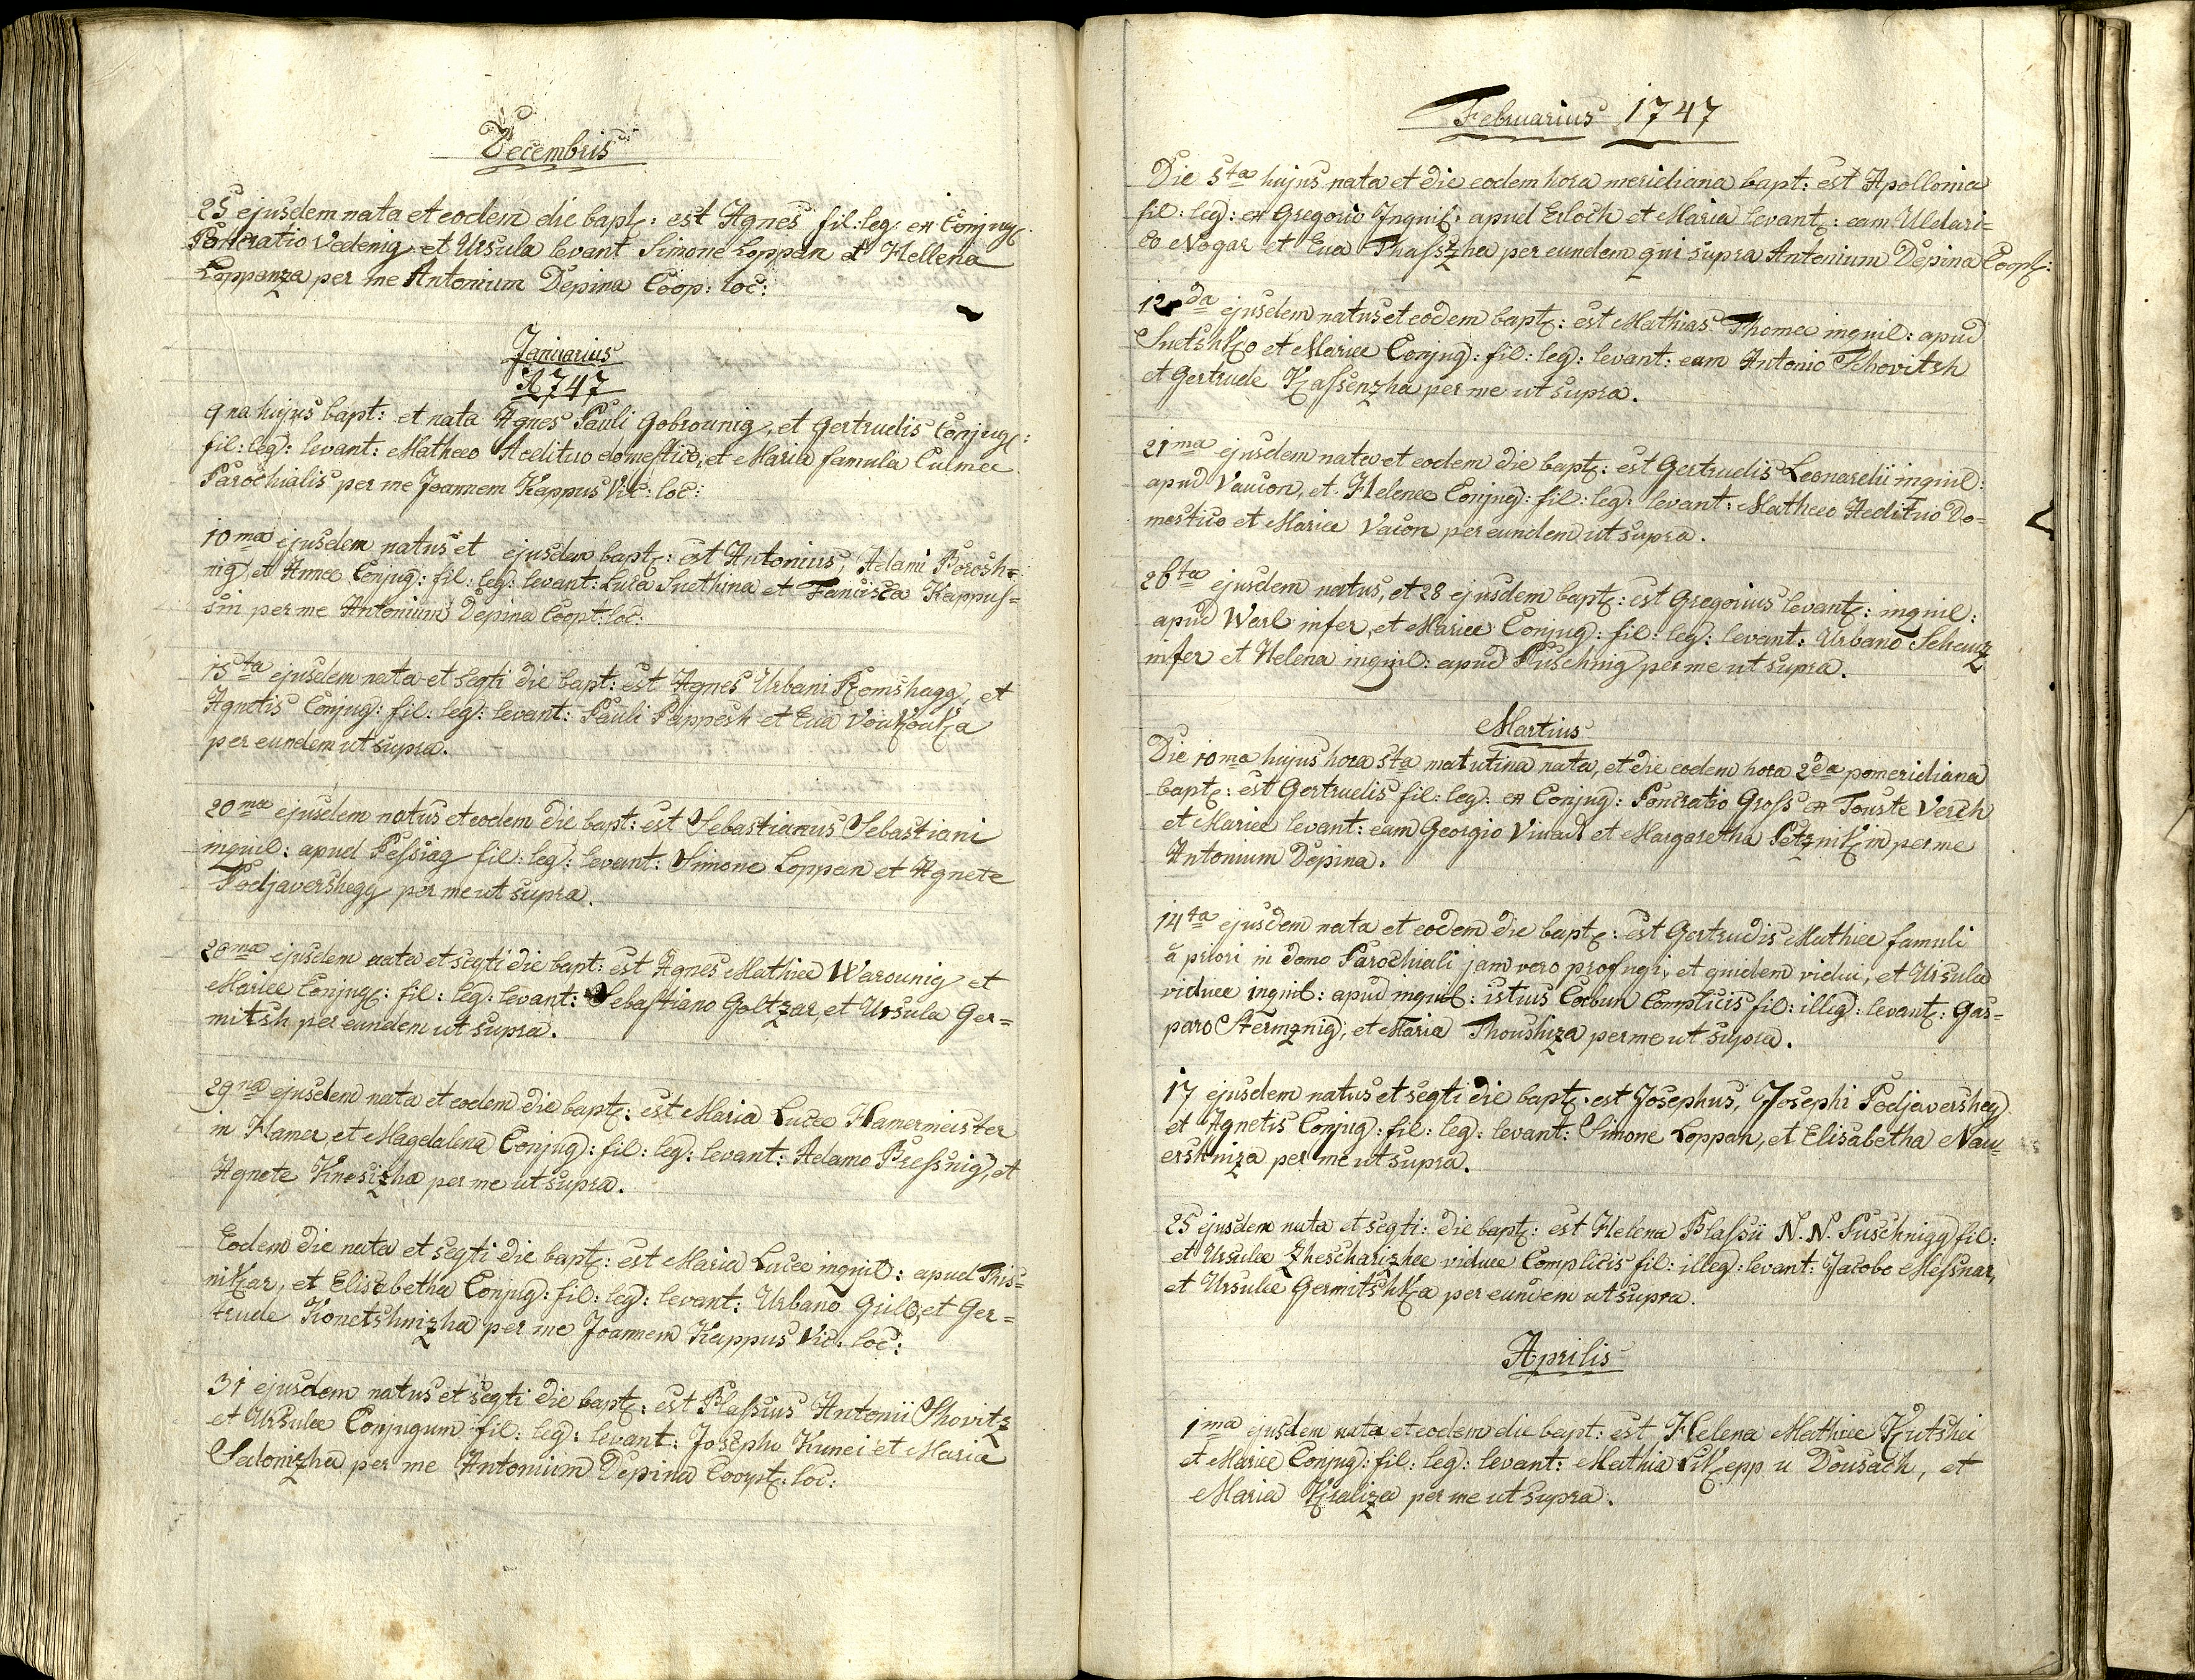 Decembris
25 ejusdem nata et eodem die bapt: est Agnes fil: leg: ex Conjug:
Pancratio Vedenig et Ursula levant Simone Loppan et Hellena
Loppanza per me Antonium Depina Coop: loc:
Januarius
1747
9na hujus bapt: et nata Agnes Pauli Gobrounig, et Gertrudis Conjug:
fil: leg: levant: Matheo Aedituo domestico, et Maria famula Culinae
Parochialis per me Joannem Kappus Vic: loc:
10ma ejusdem natus et ejusdem bapt: est Antonius, Adami Borosh=
nig, et Annae Conjug: fil: leg: levant: Luca Suethina et Francisca Kappus=
sin per me Antonium Depina Coopt: loc:
15ta ejusdem nata et seqti die bapt: est Agnes Urbani Romshagg, et
Agnetis Conjug: fil: leg: levant: Pauli Pappesh et Eva
per eundem ut supra.
20ma ejusdem natus et eodem die bapt: est Sebastianus Sebastiani
inquil: apud Pessiag fil: leg: levant: Simone Loppan et Agnete
Podjavershegg per me ut supra.
20ma ejusdem nata et seqti die bapt: est Agnes Mathiae Warounig et
Mariae Conjug: fil: leg: levant: Sebastiano Goltzar, et Ursula Ger=
mitsh per eundem ut supra.
29na ejusdem nata et eodem die bapt: est Maria Lucae Hamermeister
in Hamer, et Magdalena Conjug: fil: leg: levant: Adamo Pressnig, et
Agnete Knesizha per me ut supra.
Eodem die nata et seqti die bapt: est Maria Lucae inquil: apud This=
nikar, et Elisabetha Conjug: fil: leg: levant: Urbano Gull, et Ger=
trude Konetshnizha per me Joannem Kappus Vic: loc:
31 ejusdem natus et seqti die bapt: est Blassius Antonii Shovitz
et Ursulae Conjugum fil: leg: levant: Josepho Kunei et Maria
Sadonizha per me Antonium Depina Coopt: loc:
Februarius 1747
Die 5ta hujus nata et die eodem hora meridiana bapt: est Apollonia
fil: leg: ex Gregorio Inquil: apud Erloch et Maria levant: eam Uldari=
co Nogar et Eva Thasszha per eundem qui supra Antonium Depina Coopt:
12da ejusdem natus et eodem bapt: est Mathias Thomae inquil: apud
Suetshko et Mariae Conjug: fil: leg: levant: eam Antonio Schovitsh
et Gertrude Kassenzha per me ut supra.
21ma ejusdem nata et eodem die bapt: est Gertrudis Leonardii inquil:
apud Vaucon, et Helenae Conjug: fil: leg: levant: Matheo Aedituo Do=
mestico et Mariae Vacon per eundem ut supra.
26ta ejusdem natus, et 28 ejusdem bapt: est Gregorius levant: inquil:
apud Werl infer, et Mariae Conjug: fil: leg: levant: Urbano Schauz
infer et Helena inquil: apud Puschnig per me ut supra.
Martius
Die 10ma hujus hora 5ta matutina nata, et die eodem hora 2da pomeridiana
bapt: est Gertrudis fil: leg: ex Conjug: Pancratio Gross ex Touste Verch
et Mariae levant: eam Georgio et Margaretha Petznikin per me
Antonium Depina.
14ta ejusdem nata et eodem die bapt: est Gertrudis Mathiae famuli
à priori in domo Parochiali jam vero profugi, et quidem vidui, et Ursula
viduae inquil: apud inquil: istius Complicis fil: illeg: levant: Gas=
paro Stermznig, et Maria Thoushiza per me ut supra.
17 ejusdem natus et seqti die bapt: est Josephus, Josephi Podjaversheg
et Agnetis Conjug: fil: leg: levant: Simone Loppan, et Elisabetha Nau=
ershniza per me ut supra.
25 ejusdem nata et seqti: die bapt: est Helena Blassii N. N. Puschnigg fil:
et Ursulae Zhescharizhae viduae Complicis fil: illeg: levant: Jacobo Messnar,
et Ursulae Germitshka per eundem ut supra.
Aprilis
1ma ejusdem nata et eodem die bapt: est Helena Mathiae Kutshei
et Mariae Conjug: fil: leg: levant: Mathia Likepp u Dousach, et
Maria Kraliza per me ut supra.